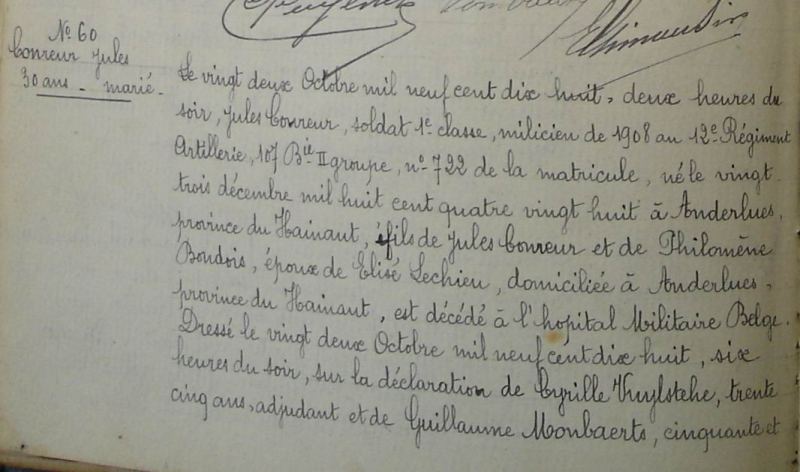 Nº 60
Conreur Jules
30 ans - marié.
Le vingt deux Octobre mil neuf cent dix huit, deux heures du
soir, Jules Conreur, soldat 1e classe, milicien de 1908 au 12e Régiment
Artillerie, 107 Bie II groupe, nº 722 de la matricule, né le vingt
trois décembre mil huit cent quatre vingt huit à Anderlues,
province du Hainaut, fils de Jules Conreur et de Philomène
Boudois, époux de Elisé Lechien, domiciliée à Anderlues,
province du Hainaut, est décédé à l'hopital Militaire Belge.
Dressé le vingt deux Octobre mil neuf cent dix huit, six
heures du soir, sur la déclaration de Cyrille Vuylsteke, trente
cinq ans, adjudant et de Guillaume Monbaerts, cinquante et